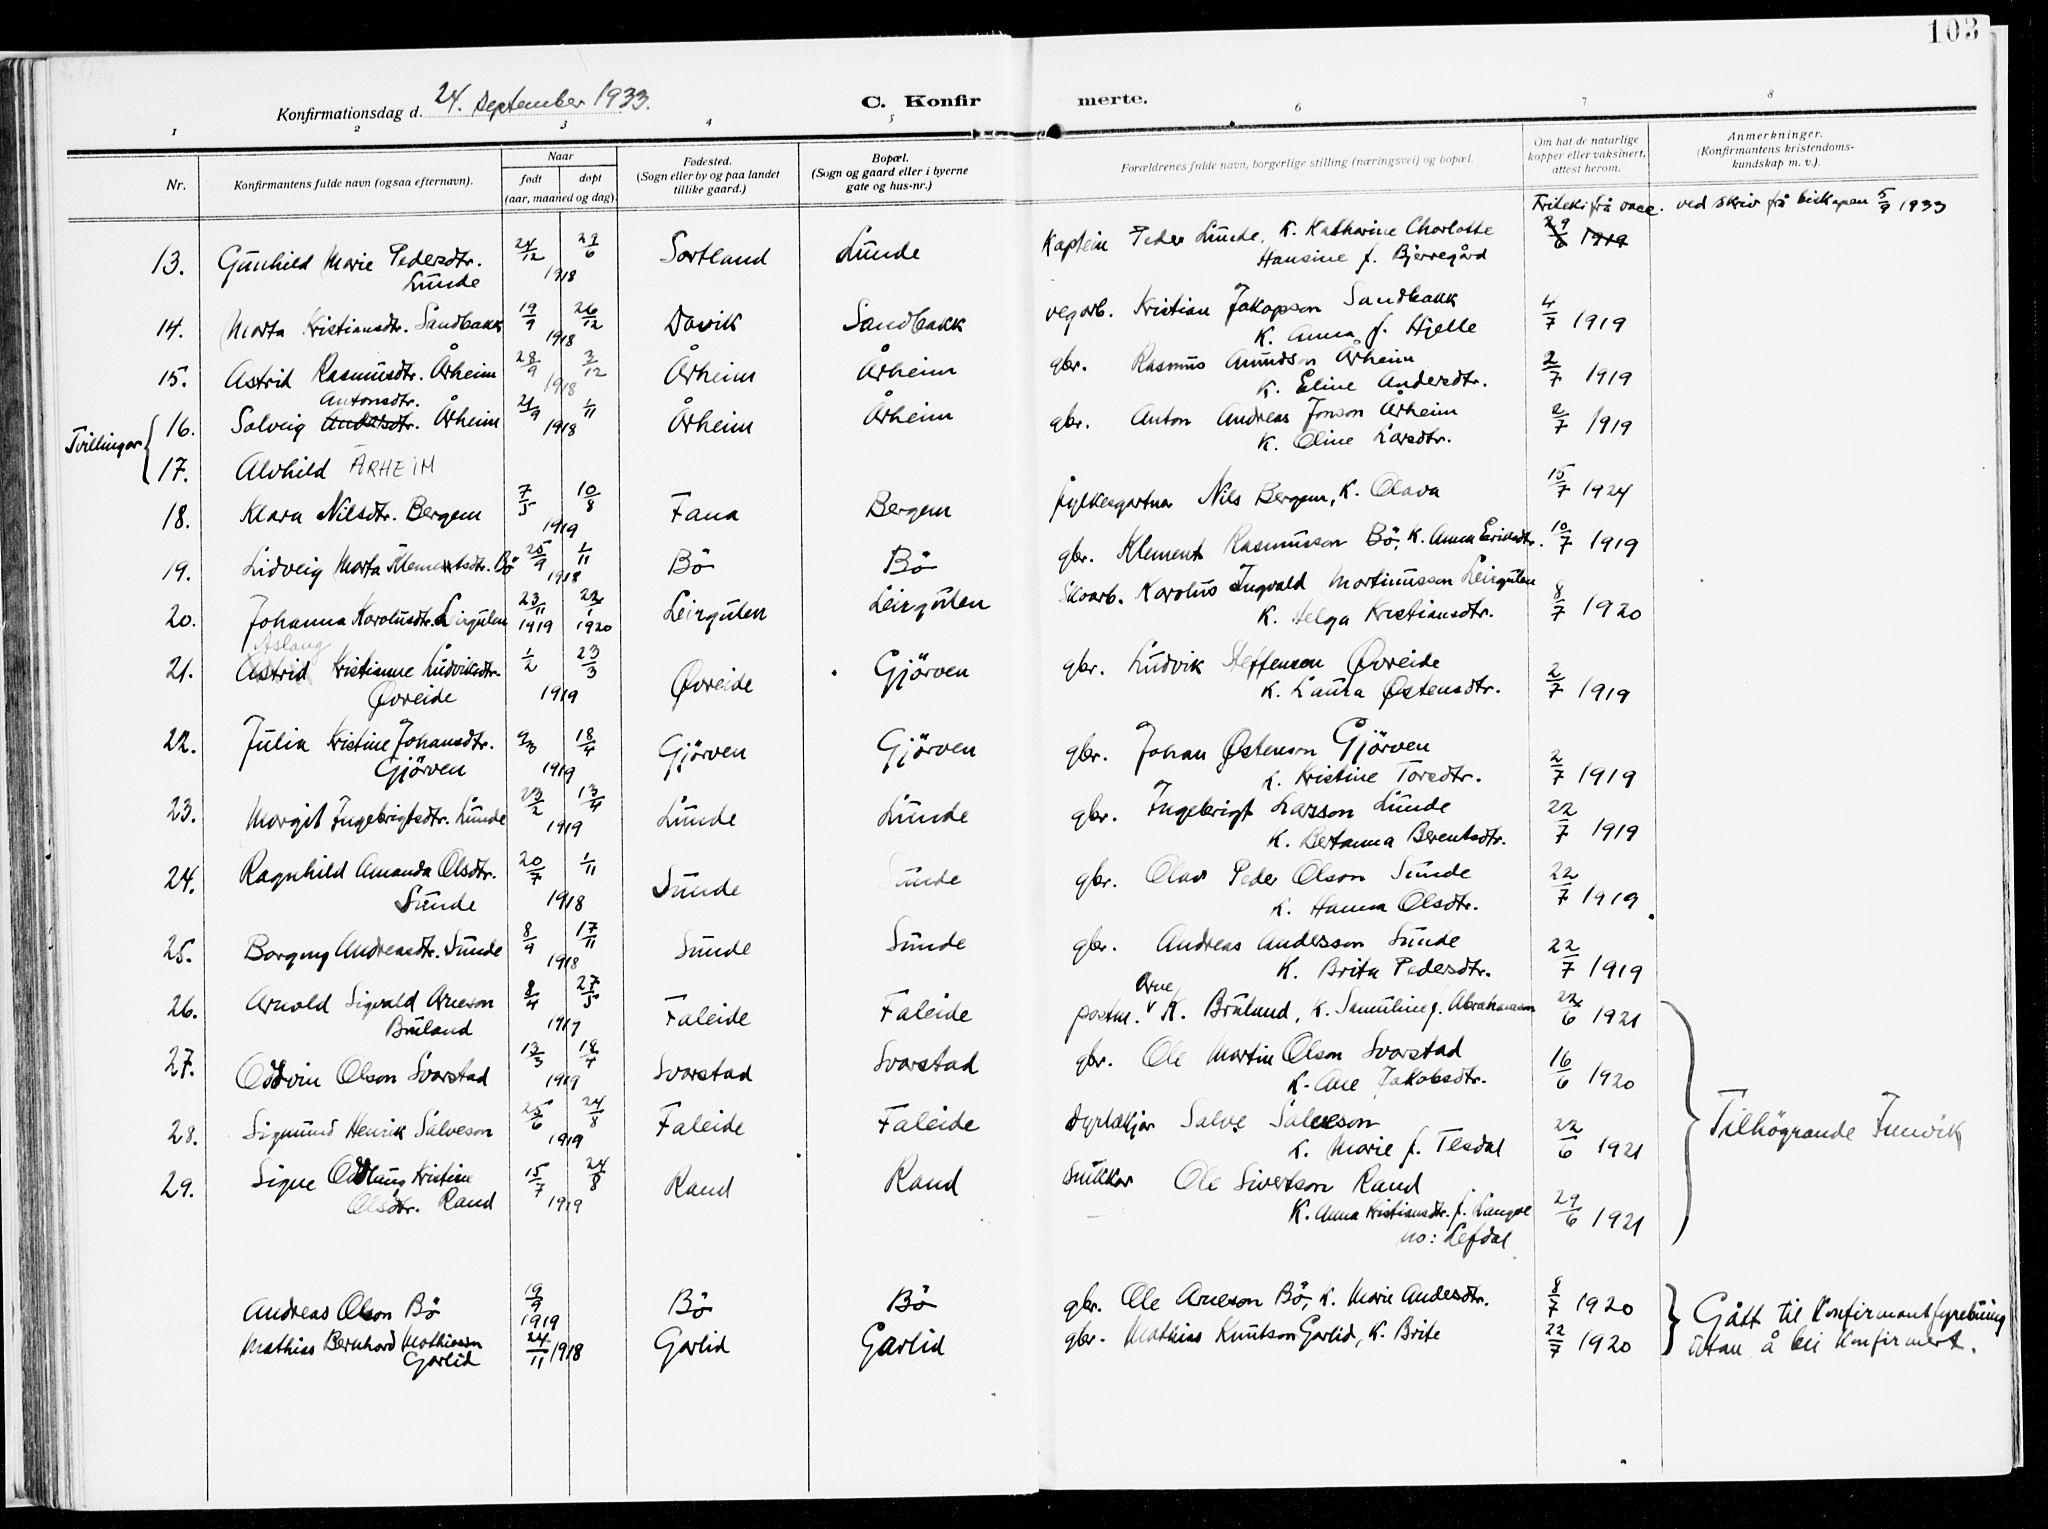 103
Konfirmationsdag d. 24. september 1933.
C. Konfir merte.
1 2 3 4 5 6 7 8
Nr.
Konfirmantens fulde navn (ogsaa efternavn).
Naar
født døpt
(aar, maaned og dag)
Fødested.
(Sogn eller by og paa landet
tillike gaard.)
Bopæl.
(Sogn og gaard eller i byerne
gate og hus-nr.)
Forældrenes fulde navn, borgerlige stilling (næringsvei) og bopæl.
Om hat de naturlige
kopper eller vaksinert,
attest herom.
Anmerkninger.
(Konfirmantens kristendoms-
kundskap m. v.).
Friteki frå vacc. ved skriv frå biskopen 5/9 1933
13. Gunhild Marie Pedersdtr. 24/12 29/6 Sortland Lunde Kaptein Peder Lunde, K. Katharine Charlotte 29/6 1919
Lunde 1918 Hansine f. Bjerregård
14. Marta Kristiansdtr. Sandbakk 19/9 26/12 Davik Sandbakk vegarb. Kristian Jakopson Sandbakk 4/7 1919
1918 K. Anna f. Hjelle
15. Astrid Rasmusdtr. Årheim 28/9 3/12 Årheim Årheim gbr. Rasmus Amundson Årheim 2/7 1919
1918 K. Eline Andersdtr.
Antonsdtr.
Tvillingar { 16. Solveig Andersdtr. Årheim 21/9 1/11 Årheim Årheim gbr. Anton Andreas Jonson Årheim 2/7 1919
1918 K. Oline Larsdtr.
17. Alvhild ÅRHEIM
18. Klara Nilsdtr. Bergem 7/5 10/8 Fana Bergem fylkesgartnar Nils Bergem, K. Olava 15/7 1924
1919
19. Lidveig Marta Klementsdtr. Bö 25/9 1/11 Bö Bö gbr. Klement Rasmusson Bö, K. Anna Eriksdtr. 10/7 1919
1918
20. Johanna Karolusdtr. Leirgulen 23/11 22/1 Leirgulen Leirgulen Skoarb. Karolus Ingvald Martinusson Leirgulen 8/7 1920
1919 1920 K. Helga Kristiansdtr.
Aslaug
21. Astrid Kristianne Ludviksdtr. 1/2 23/3 Øvreide Gjörven gbr. Ludvik Steffenson Øvreide 2/7 1919
Øvreide 1919 K. Laura Østensdtr.
22. Julia Kristine Johansdtr. 9/3 18/4 Gjörven Gjörven gbr. Johan Østenson Gjörven 2/7 1919
Gjörven 1919 K. Kristine Torsdtr.
23. Margit Ingebrigtsdtr. Lunde 23/2 13/4 Lunde Lunde gbr. Ingebrigt Larsson Lunde 22/7 1919
1919 K. Bertanna Berentsdtr.
24. Ragnhild Amanda Olsdtr. 20/7 1/11 Sunde Sunde gbr. Olav Peder Olson Sunde 22/7 1919
Sunde 1918 K. Hanna Olsdtr.
25. Borgny Andreasdtr. Sunde 8/9 17/11 Sunde Sunde gbr. Andreas Andersson Sunde 22/7 1919
1918 K. Brita Pedersdtr.
Arne
26. Arnold Sigvald Arneson 8/4 27/5 Faleide Faleide postm. K. Bruland, K. Samuline f. Abrahamsen 22/6 1921
Bruland 1919
27. Oddvin Olson Svarstad 13/3 18/4 Svarstad Svarstad gbr. Ole Martin Olson Svarstad 16/6 1920
1919 K. Ane Jakobsdtr.
28. Sigmund Henrik Salveson 25/6 24/8 Faleide Faleide Dyrlækjar Salve Salveson 22/6 1921
1919 K. Marie f. Tesdal
} Tilhögrande Innvik
29. Signe Oddlaug Kristine 15/7 24/8 Rand Rand Snikkar Ole Sivertson Rand 29/6 1921
Olsdtr. Rand 1919 K. Anna Kristiansdtr. f. Langse
no: Lefdal
Andreas Olson Bö 19/9 1919 Bö Bö gbr. Ole Arneson Bö, K. Marie Andersdtr. 8/7 1920 } Gått til konfirmantfyrebuing
Mathias Bernhard Mathisson 24/11 1918 Garlid Garlid gbr. Mathias Knutson Garlid, K. Brite 22/7 1920 utan å bli konfirmert.
Garlid